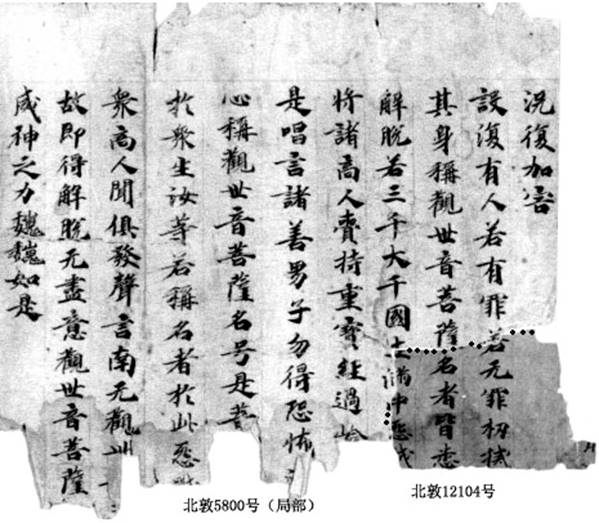 況復加害
設復有人若有罪若无罪杻械
其身稱觀世音菩薩名者皆悉
解脫若三千大千國土滿中怨
將諸商人齎持重寶經過嶮
是唱言諸善男子勿得恐怖
心稱觀世音菩薩名号是菩
於衆生汝等若稱名者於此怨
衆商人聞俱發聲言南无觀世
故即得解脫无盡意觀世音菩薩
威神之力巍巍如是
北敦5800号（局部）
北敦12104号